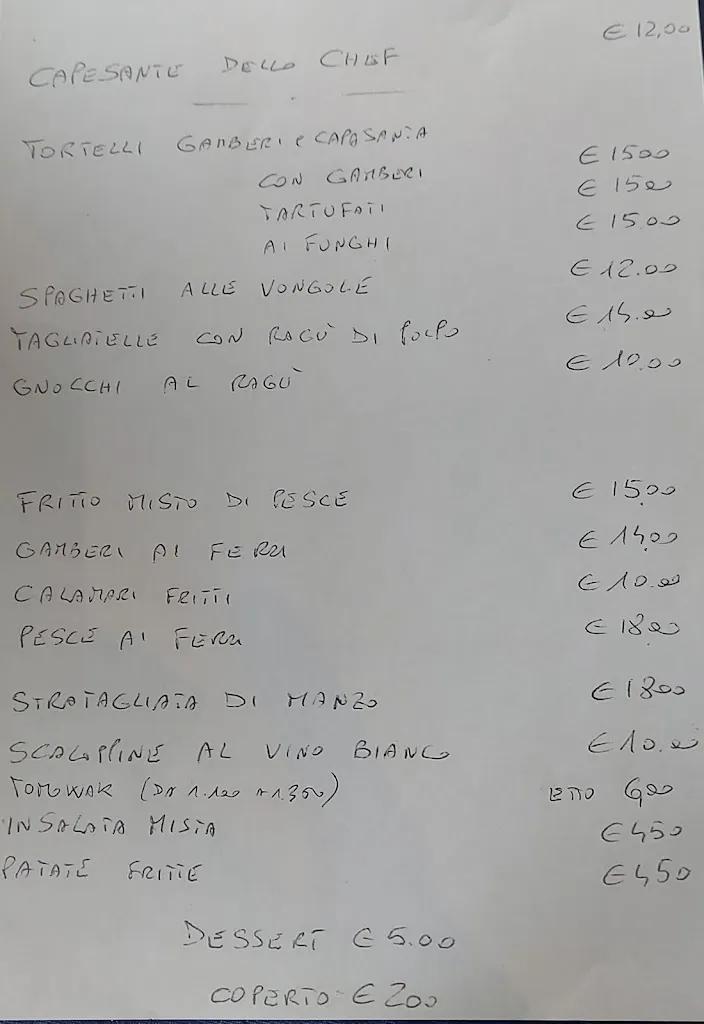 CAPESANTE DELLO CHEF € 12,00
TORTELLI GAMBERI e CAPASANTA € 1500
CON GAMBERI € 1500
TARTUFATI € 15.00
AI FUNGHI € 12.00
SPAGHETTI ALLE VONGOLE
TAGLIATELLE CON RAGÙ DI POLPO € 14.00
GNOCCHI AL RAGÙ € 10.00
FRITTO MISTO DI PESCE € 15.00
GAMBERI AI FERRI € 14.00
CALAMARI FRITTI € 10.00
PESCE AI FERRI € 18.00
STRATAGLIATA DI MANZO € 1800
SCALOPPINE AL VINO BIANCO € 10.00
TOMOWAK (DA 1.100 A 1.300) ETTO 600
INSALATA MISTA € 450
PATATE FRITTE € 450
DESSERT € 5.00
COPERTO € 200